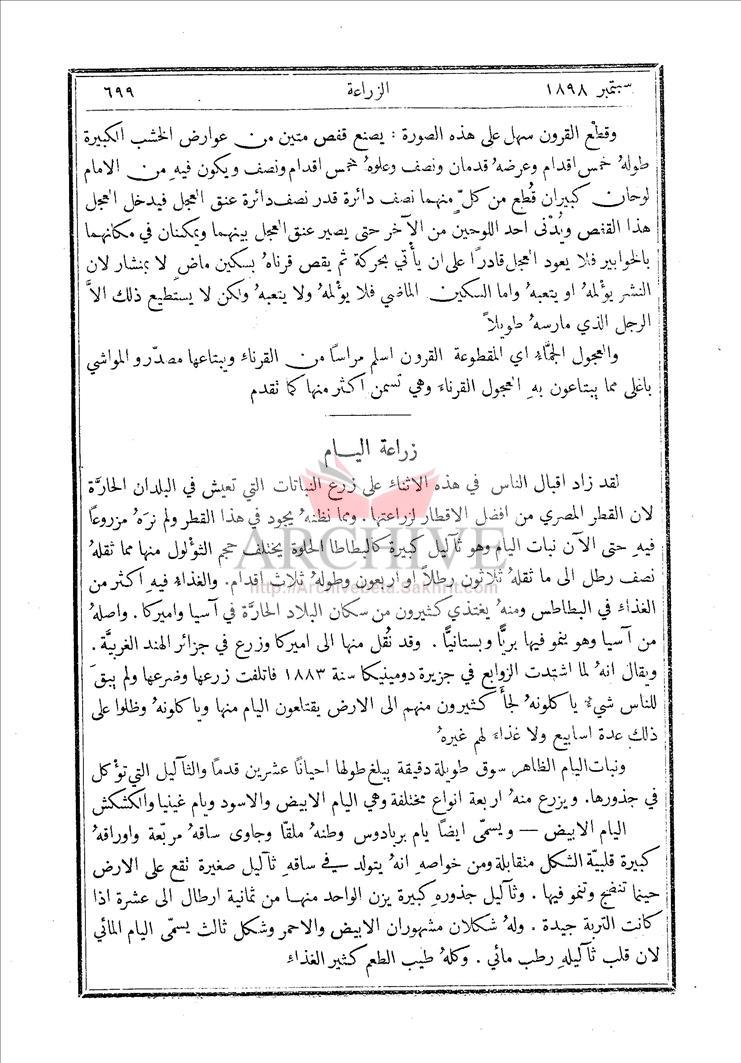 سبتمبر ١٨٩٨ الزراعة ٦٩٩
وقطْع القرون سهل على هذه الصورة : يصنع قفص متين من عوارض الخشب الكبيرة
طولهُ خمس اقدام وعرضهُ قدمان ونصف وعلوهُ خمس اقدام ونصف ويكون فيهِ من الامام
لوحان كبيران قُطع من كلّ منهما نصف دائرة قدر نصف دائرة عنق العجل فيدخل العجل
هذا القفص ويُدْنى احد اللوحين من الآخر حتى يصير عنق العجل بينهما ويمكنان في مكانهما
بالخوابير فلا يعود العجل قادرًا على ان يأتي بحركة ثم يقص قرناهُ بسكين ماضٍ لا بمنشار لان
النشر يؤلمهُ او يتعبهُ واما السكين الماضي فلا يؤلمهُ ولا يتعبهُ ولكن لا يستطيع ذلك الاَّ
الرجل الذي مارسهُ طويلاً
والعجول الجمَّاء اي المقطوعة القرون اسلم مراسًا من القرناء ويبتاعها مصدّرو المواشي
باغلى مما يبتاعون بهِ العجول القرناء وهي تسمن اكثر منها كما تقدم
زراعة اليام
لقد زاد اقبال الناس في هذه الاثناء على زرع النباتات التي تعيش في البلدان الحارَّة
لان القطر المصري من افضل الاقطار لزراعتها . ومما نظنهُ يجود في هذا القطر ولم نرَهُ مزروعًا
فيهِ حتى الآن نبات اليام وهو ثآليل كبيرة كالبطاطا الحلوة يختلف حجم الثؤلول منها مما ثقلهُ
نصف رطل الى ما ثقلهُ ثلاثون رطلاً او اربعون وطولهُ ثلاث اقدام . والغذاء فيهِ اكثر من
الغذاء في البطاطس ومنهُ يغتذي كثيرون من سكان البلاد الحارَّة في آسيا واميركا . واصلهُ
من آسيا وهو ينمو فيها بريًّا وبستانيًّا . وقد نُقل منها الى اميركا وزرع في جزائر الهند الغربيَّة .
ويقال انهُ لما اشتدت الزوابع في جزيرة دومينيكا سنة ١٨٨٣ فاتلفت زرعها وضرعها ولم يبقَ
للناس شيءٌ ياكلونهُ لجأَ كثيرون منهم الى الارض يقتلعون اليام منها وياكلونهُ وظلوا على
ذلك عدة اسابيع ولا غذاء لهم غيرهُ
ونبات اليام الظاهر سوق طويلة دقيقة يبلغ طولها احيانًا عشرين قدمًا والثآليل التي تؤكل
في جذورها. ويزرع منهُ اربعة انواع مختلفة وهي اليام الابيض والاسود ويام غينيا والكشكش
اليام الابيض — ويسمّى ايضًا يام بربادوس وطنهُ ملقّا وجاوى ساقهُ مربّعة واوراقهُ
كبيرة قلبيّة الشكل متقابلة ومن خواصهِ انهُ يتولد في ساقهِ ثآليل صغيرة تقع على الارض
حينما تنضج وتنمو فيها . وثآليل جذورهِ كبيرة يزن الواحد منها من ثمانية ارطال الى عشرة اذا
كانت التربة جيدة . ولهُ شكلان مشهوران الابيض والاحمر وشكل ثالث يسمّى اليام المائي
لان قلب ثآليلهِ رطب مائي . وكلهُ طيب الطعم كثير الغذاء
ARCHIVE
http://Archivebeta.Sakhrit.com